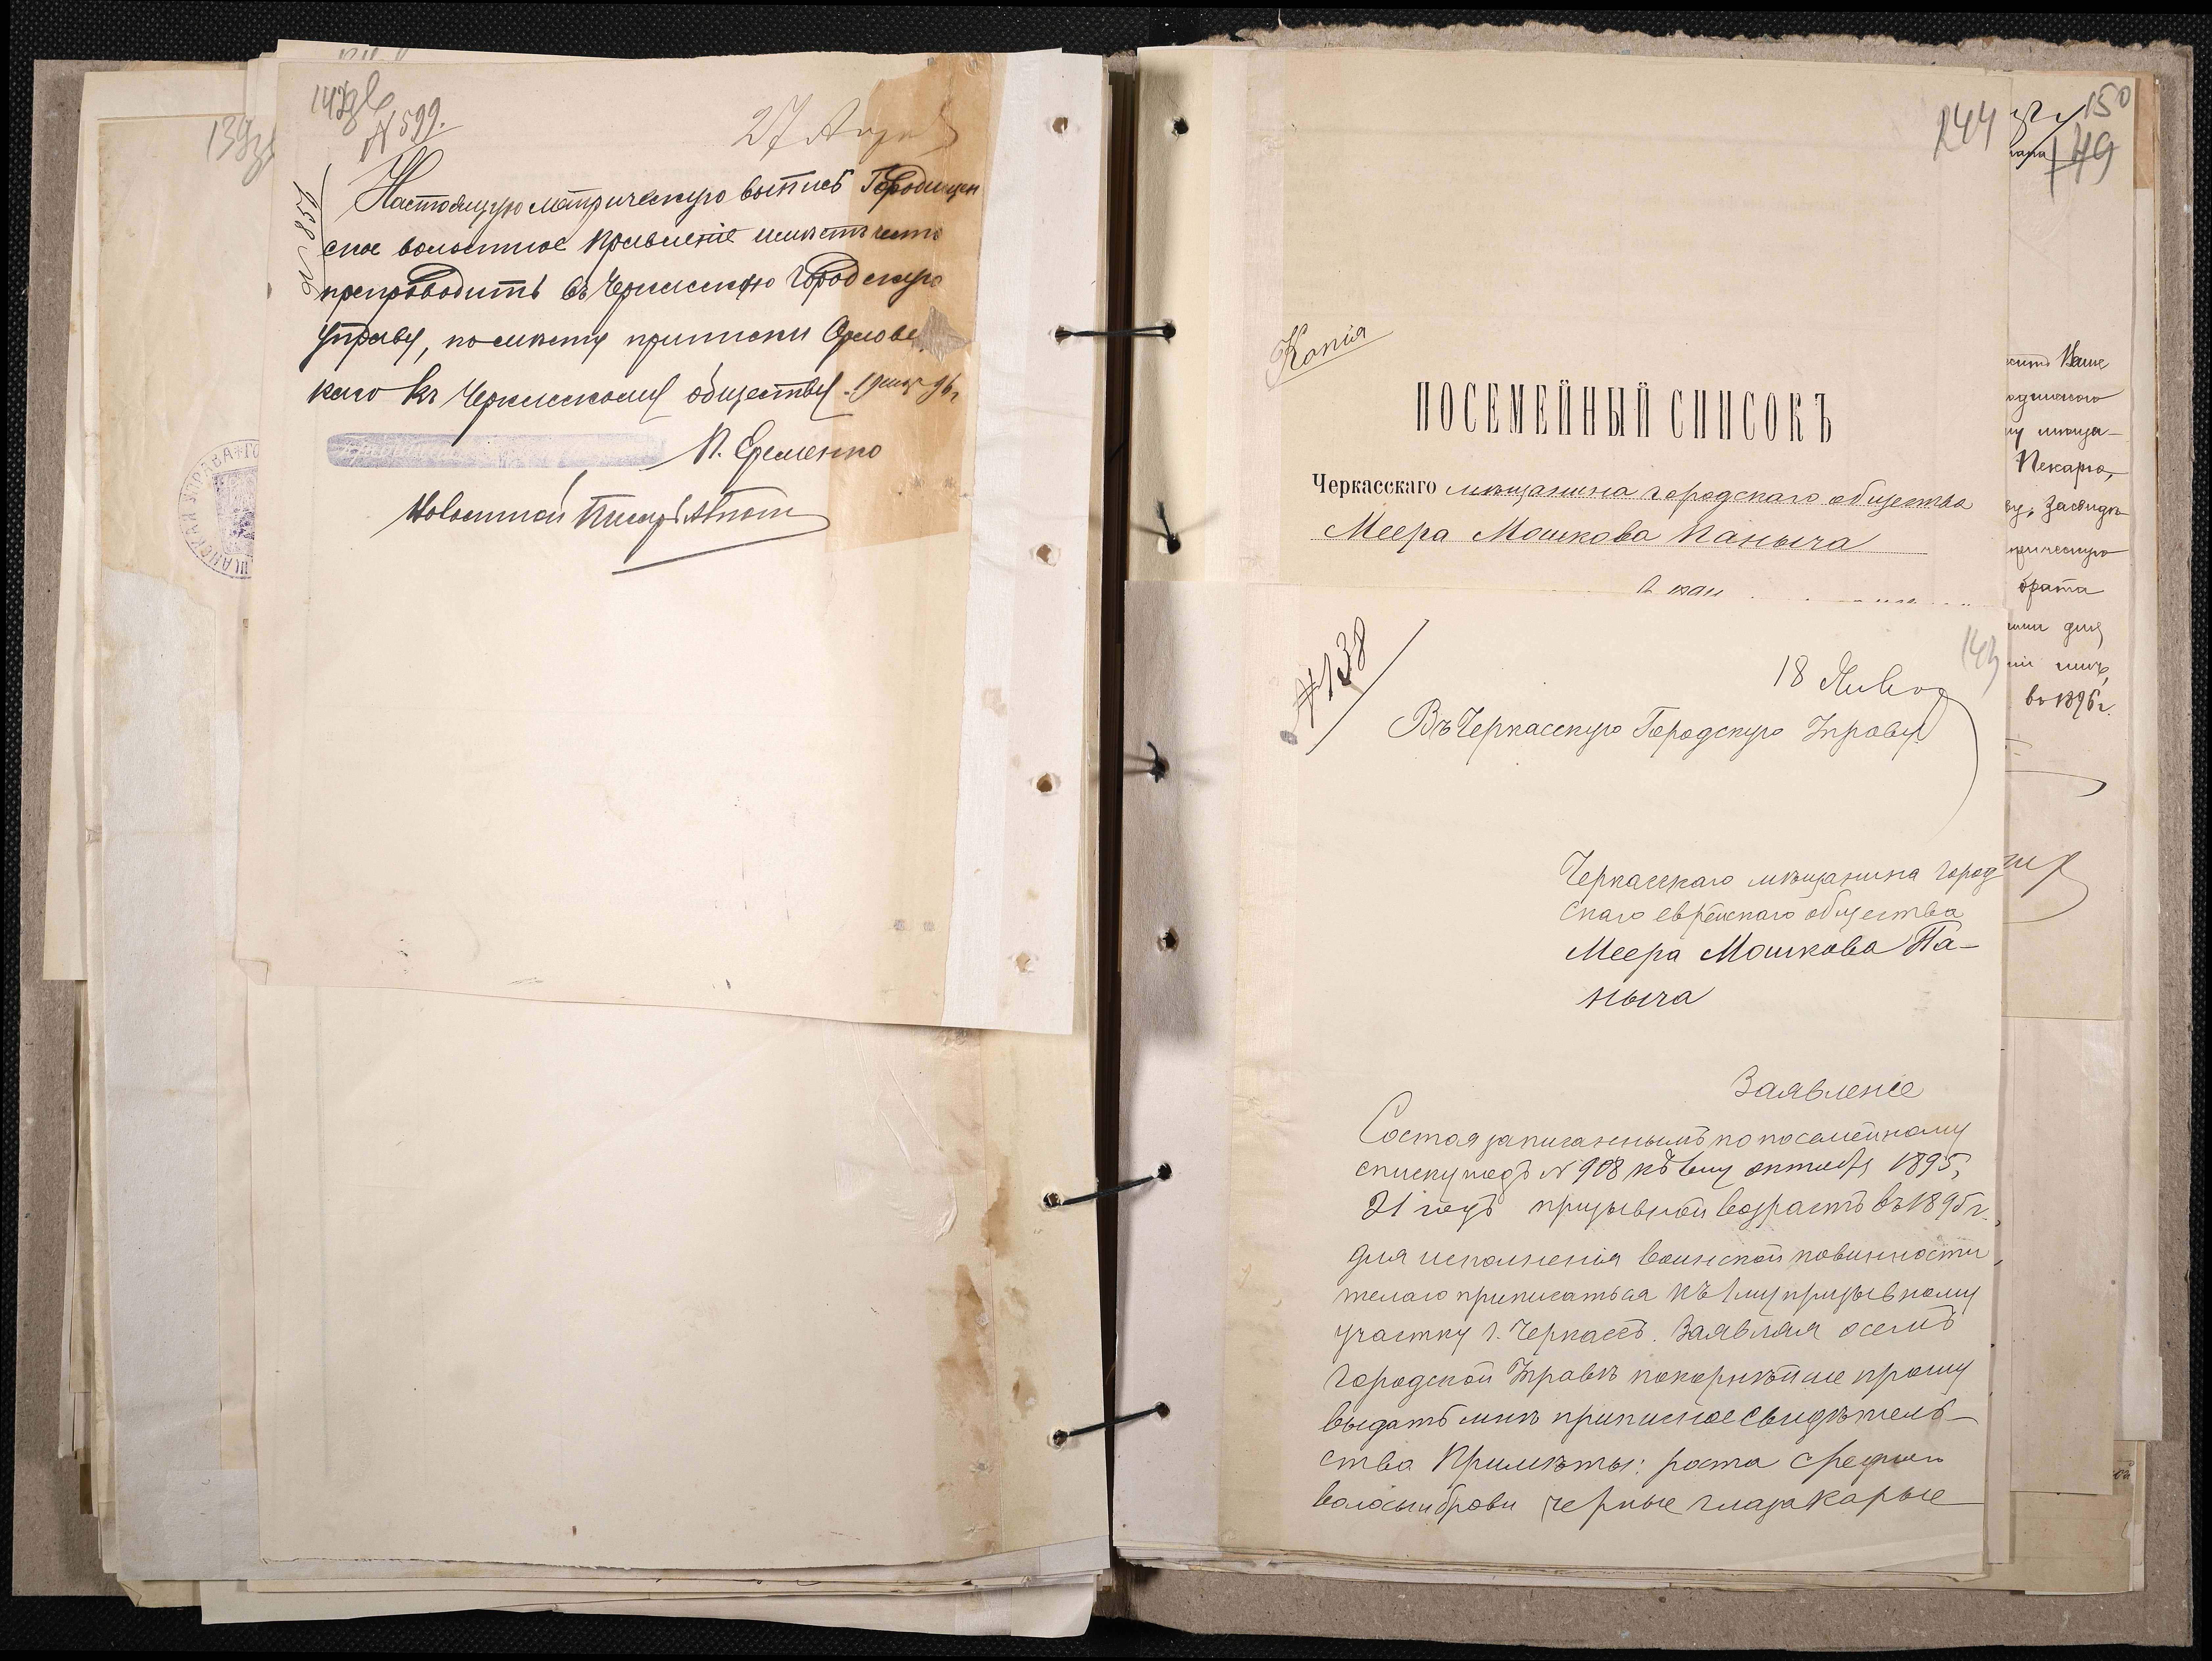 142об
№ 599.
Настоящую метрическую выпись Городищен
ское волостное Правленіе имѣетъ честь
препроводить въ Черкасскую Городскую
Управу, по мѣсту приписки Орловс
каго къ Черкасскому обществу.
П. Еременко
Волостной Писарь
139
244
150
149
Копія
ПОСЕМЕЙНЫЙ СПИСОКЪ
Черкасскаго мѣщанина городскаго общества
Меера Мошкова Паныча
№ 138
143
18 Янв
Въ Черкасскую Городскую Управу
Черкасскаго мѣщанина город
скаго еврейскаго общества
Меера Мошкова Па-
ныча
Заявленіе
Состоя записаннымъ по посемейному
списку подъ № 908 къ 1му октября 1895,
21 годъ призывной возрастъ въ 1895 г.
для исполненія воинской повинности,
желаю приписаться къ 1му призывному
участку г. Черкассъ. Заявляя о семъ
Городской Управѣ покорнѣйше прошу
выдать мнѣ приписное свидѣтель-
ство Примѣты: роста средняго
волосы и брови черные глаза карые
Пекарю,
брата
въ 1896 г.